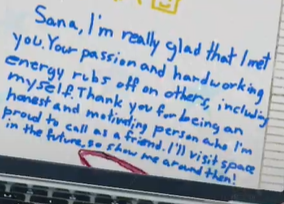 Sana, I'm really glad that I met
you. Your passion and hardworking
energy rubs off on others, including
myself. Thank you for being an
honest and motivating person who I'm
proud to call as a friend. I'll visit space
in the future, so show me around then!